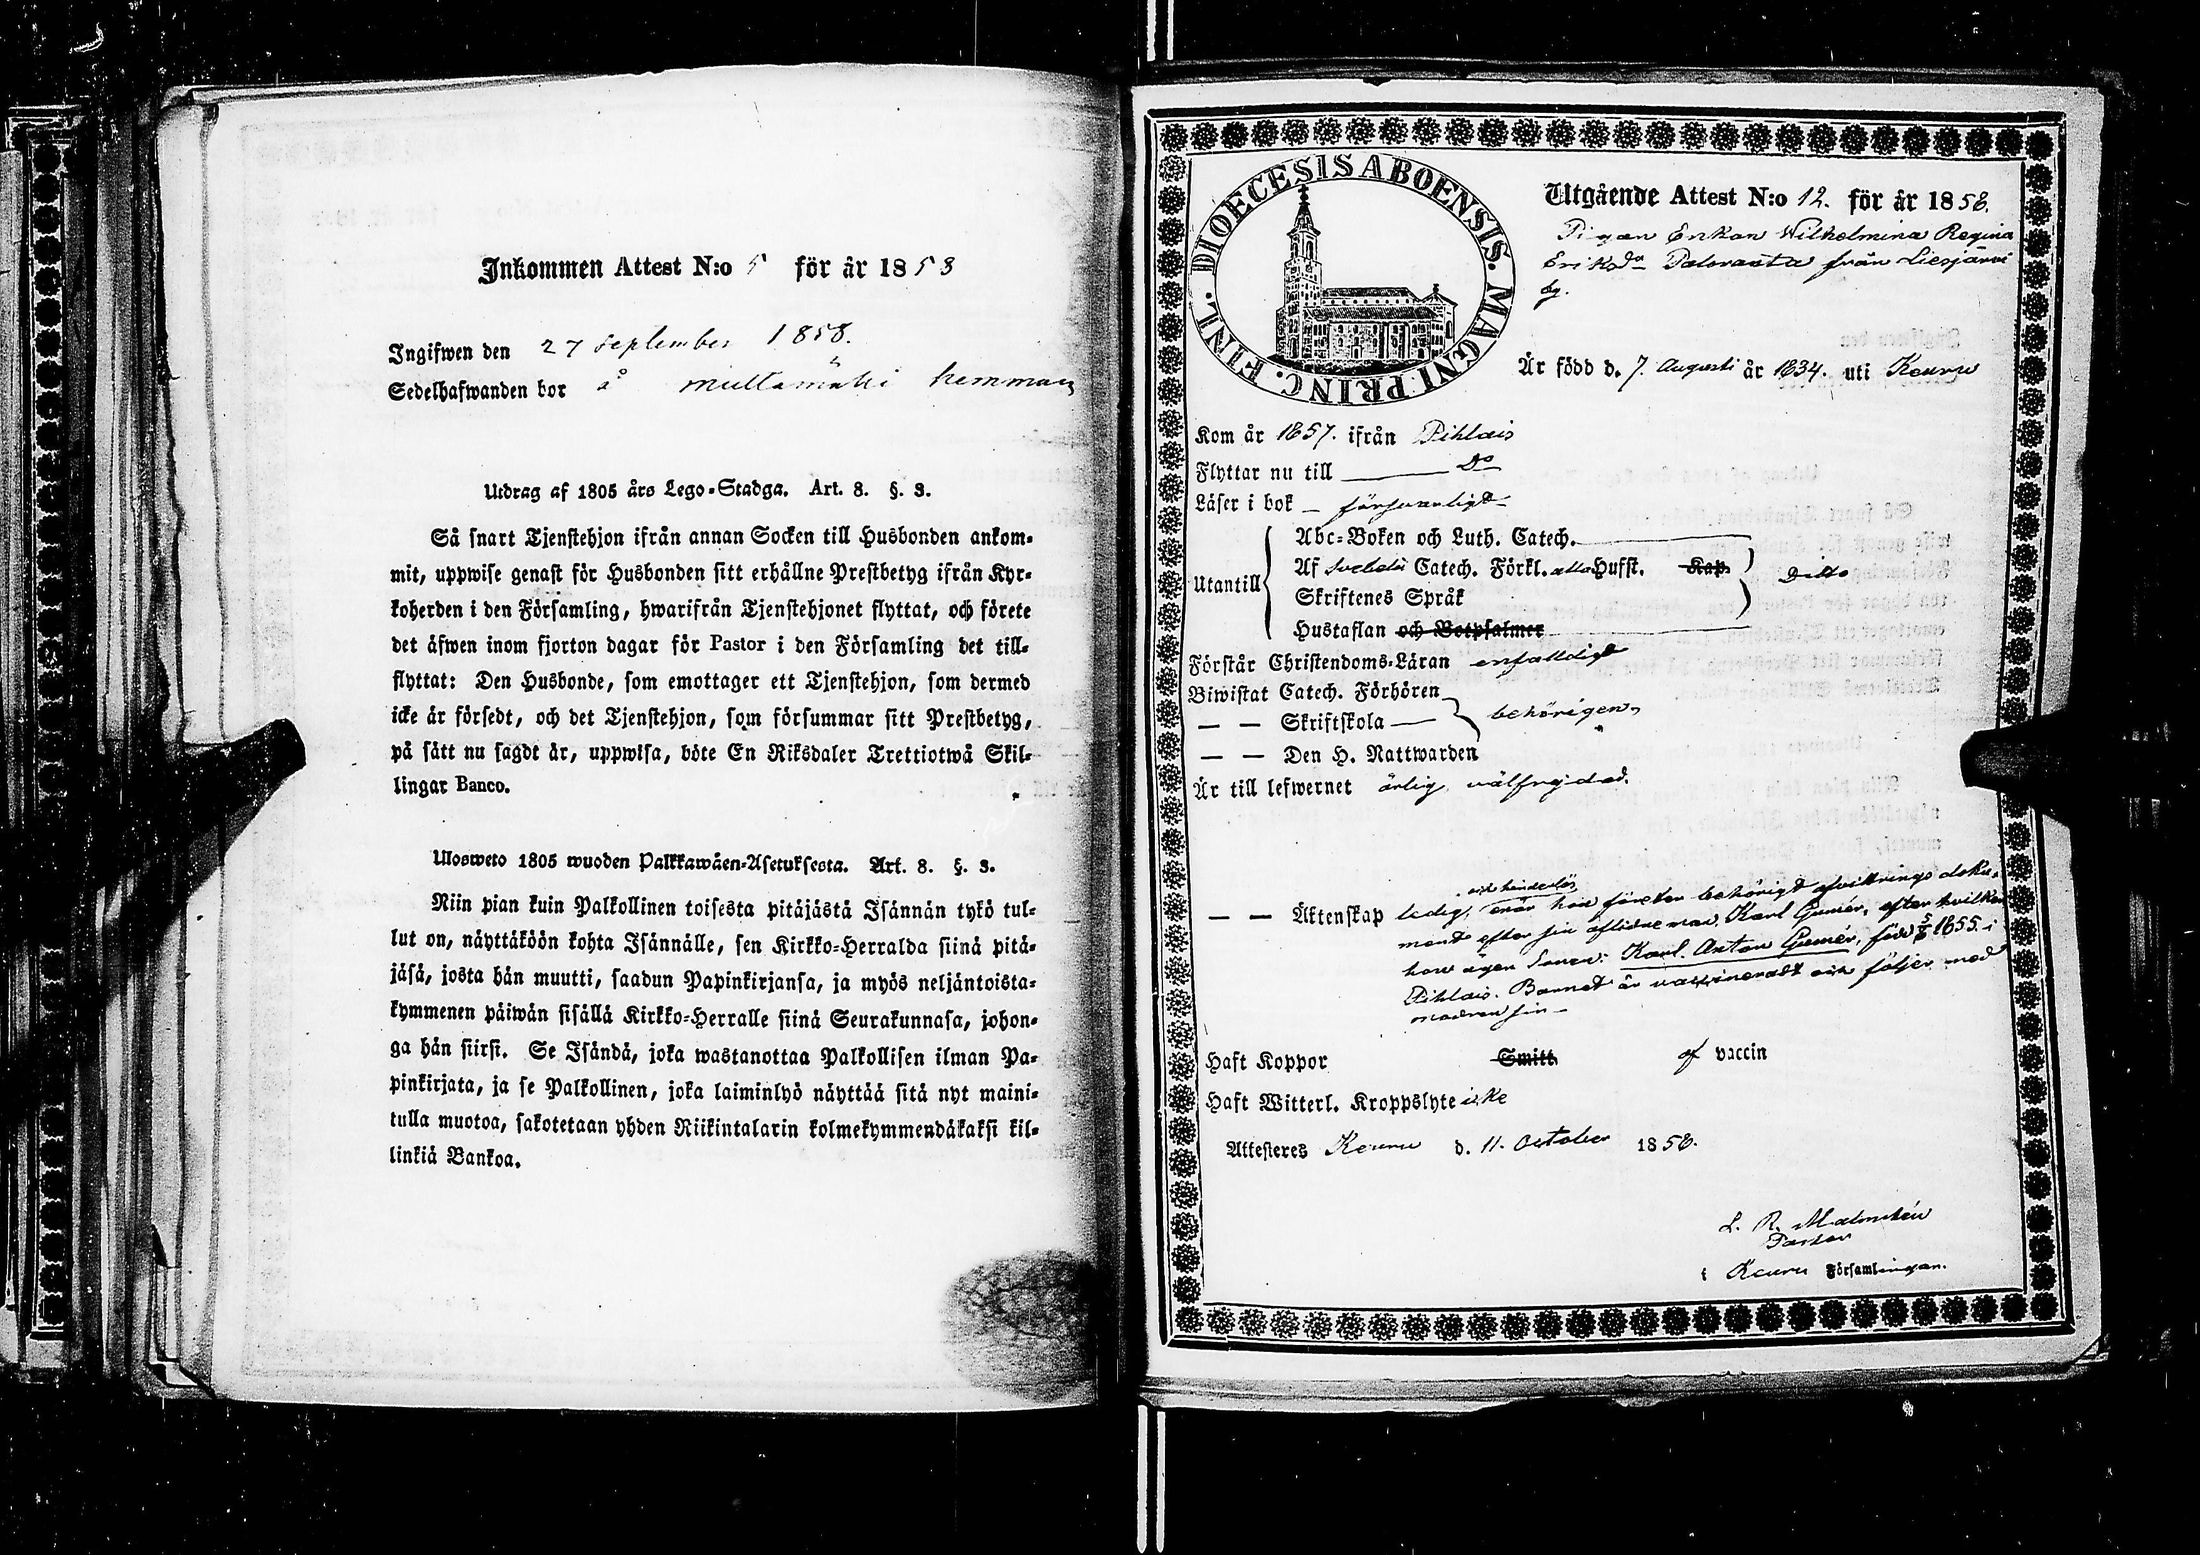 Inkommen Attest N:o 5 för år 1858
Ingifwen den 27 september 1858.
Sedelhafwanden bor å Multamäki hemman
Utdrag af 1805 års Lego-Stadga. Art. 8. §. 3.
Så snart Tjenstehjon ifrån annan Socken till Husbonden ankom-
mit, uppwise genast för Husbonden sitt erhållne Prestbetyg ifrån Kyr-
koherden i den Församling, hwarifrån Tjenstehjonet flyttat, och förete
det äfwen inom fjorton dagar för Pastor i den Församling det till-
flyttat: Den Husbonde, som emottager ett Tjenstehjon, som dermed
icke är försedt, och det Tjenstehjon, som försummar sitt Prestbetyg,
på sätt nu sagdt är, uppwisa, böte En Riksdaler Trettiotwå Skil-
lingar Banco.
Ulosweto 1805 wuoden Palkkawäen-Asetuksesta. Art. 8. §. 3.
Niin pian kuin Palkollinen toisesta pitäjästä Isännän tykö tul-
lut on, näyttäköön kohta Isännälle, sen Kirkko-Herralda siinä pitä-
jäsä, josta hän muutti, saadun Papinkirjansa, ja myös neljäntoista-
kymmenen päiwän sisällä Kirkko-Herralle siinä Seurakunnasa, johon-
ga hän siirsi. Se Isändä, joka wastanottaa Palkollisen ilman Pa-
pinkirjata, ja se Palkollinen, joka laiminlyö näyttää sitä nyt maini-
tulla muotoa, sakotetaan yhden Riikintalarin kolmekymmendäkaksi kil-
linkiä Bankoa.
DIOECESIS ABOENSIS. MAGNI PRINC. FINL.
Utgående Attest N:o 12. för år 1858.
Pigan Enkan Wilhelmina Regina
Eriksdr Paloranta från Liesjärvi
by.
Är född d. 7. Augusti år 1834. uti Keuru
Kom år 1857. ifrån Pihlais
Flyttar nu till Do
Läser i bok försvarligt
Utantill
Abc-Boken och Luth. Catech.
Af Svebelii Catech. Förkl. Husst. Kap.
Skriftenes Språk
Ditto
Hustaflan och Botpsalmer
Förstår Christendoms-Läran enfalldigt
Biwistat Catech. Förhören
— — Skriftskola behörigen
— — Den H. Nattwarden
Är till lefwernet ärlig, välfrejdad.
och hinderlös
— — Äktenskap ledig, enär hon företer behörigt afvittrings doku-
ment efter sin aflidne man, Karl Gumér, efter hvilken
hon ägen Sonen: Karl Anton Gumér, född 5/6 1855. i
Pihlais. Barnet är vaccineradt och följer med
modren sin
Haft Koppor Smitt. af vaccin
Haft Witterl. Kroppslyte icke
Attesteres Keuru d. 11. October 1858.
L. R. Malmstén
Pastor
i Keuru Församlingan.